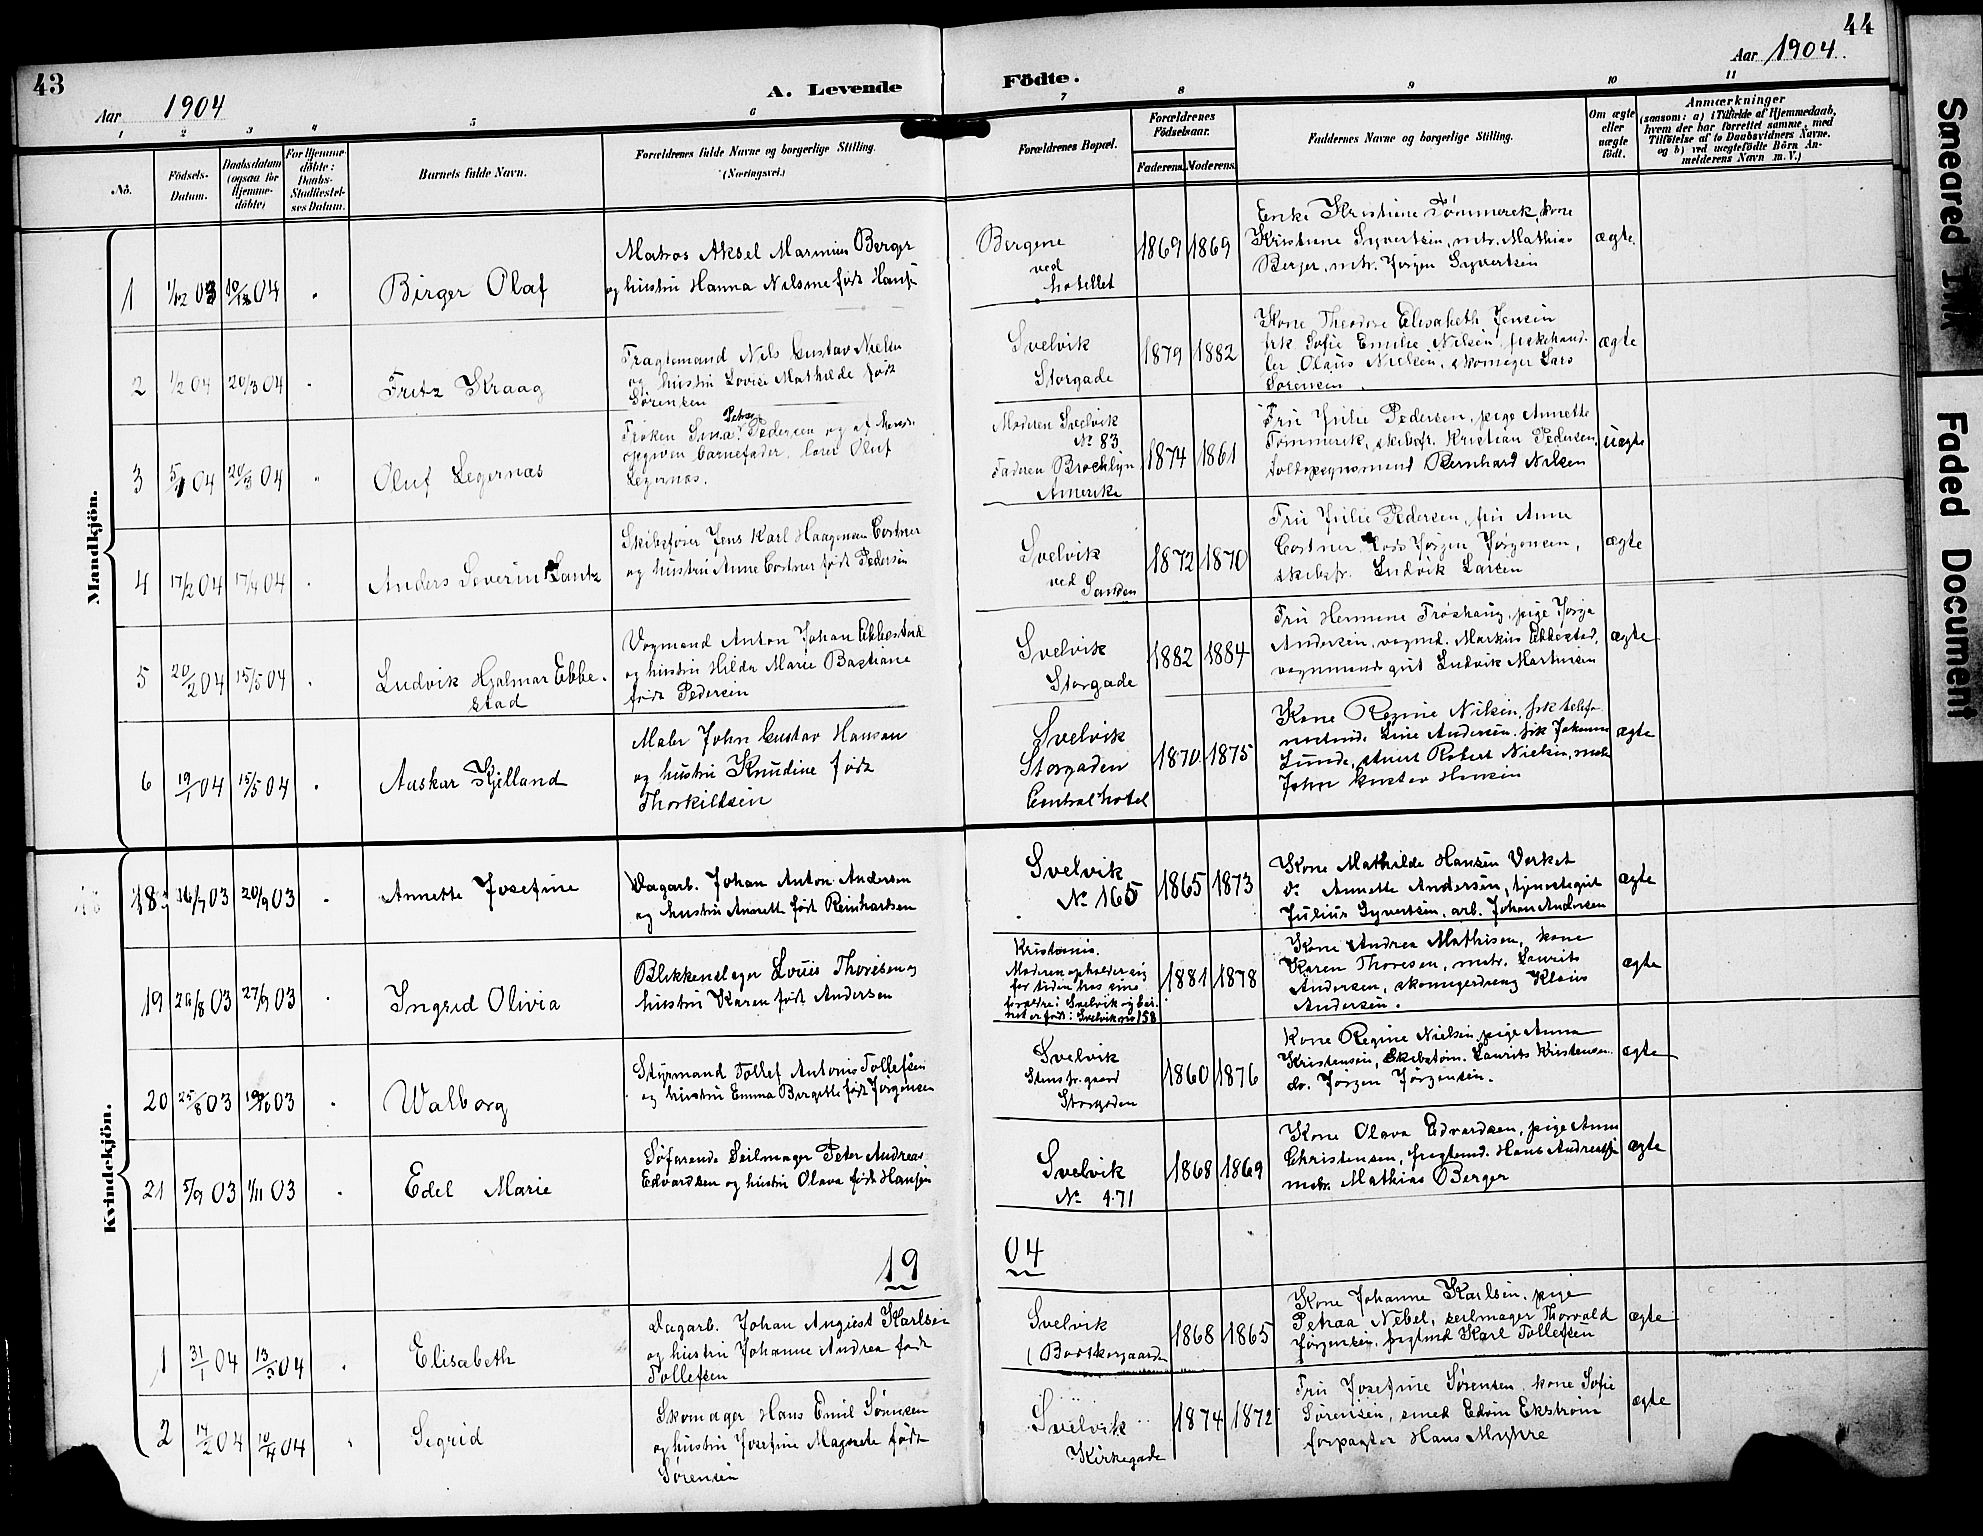 43
Aar 1904
A. Levende
Födte.
Aar 1904.
44
1 2 3 4 5 6 7 8 9 10 11
No.
Födsels-
Datum.
Daabsdatum
(ogsaa for
Hjemme-
döbte)
For Hjemme-
döbte:
Daabs-
Stadfæstel-
ses Datum.
Barnets fulde Navn.
Forældrenes fulde Navne og borgerlige Stilling.
(Næringsvei.)
Forældrenes Bopæl.
Forældrenes
Födselsaar.
Faderens. Moderens.
Faddernes Navne og borgerlige Stilling.
Om ægte
eller
uægte
födt.
Anmærkninger
(saasom: a) i Tilfælde af Hjemmedaab,
hvem der har forrettet samme, med
Tilföielse af to Daabsvidners Navne,
og b) ved uægtefödte Börn An-
melderens Navn m. V.)
Mandkjön.
1 1/12 03 04
Birger Olaf
Matros Aksel Marinius Berger
og hustru Hanna Nilsine født Hans.
Bergene
ved
hotellet
1869 1869
Enke Kristiane Tømmerek, kone
Kristiane Syvertsen, mtr. Mathias
Berger, mtr. Jørgen Syvertsen
ægte.
2 1/2 04 20/3 04
Fritz Kraag
Fragtemand Nils Gustav Nielsen
og hustru Lovise Mathilde født
Sørensen
Svelvik
Storgade
1879 1882
Kone Theodore Elisabeth Jensen
frk Sofie Emilie Nilsen, fiskehand-
ler Olaus Nielsen, skomager Lars
Sørensen.
ægte
3 5/1 04 20/3 04
Oluf Legernæs
Petra
Frøken Pedersen og af hende
opgiven barnefader, Oluf
Legernæs.
Moderen Svelvik
No 83
Faderen Brooklyn
Amerika
1874 1861
Fru Julie Pedersen, pige Annette
Tømmerek, skibsfr. Kristian Pedersen,
toldopsynsmand Bernhard Nilsen
uægte
4 17/2 04 17/4 04
Anders Severin Lantz
Skibsfører Jens Karl Haagensen Cortner
og hustru Anne Cortner født Pedersen
Svelvik
ved
Sanden
1872 1870
Fru Julie Pedersen, fru Anne
Cortner, Lods Jørgen Jørgensen,
skibsfr. Ludvik Larsen
ægte
5 20/2 04 15/5 04
Ludvik Hjalmar Ebbe-
stad
Vognmand Anton Johan Ebbestad
og hustru Hilda Marie Bastiane
født Pedersen
Svelvik
Storgade
1882 1884
Fru Hermine Frøshaug, pige
Andersen, vognmd. Markus Ebbestad,
vognmandsgut Ludvik Martinsen
ægte
6 19/1 04 15/5 04
Auskar Kjelland
Maler John Gustav Hansen
og hustru Knudine født
Thorkildsen
Svelvik
Storgaden
Centralhotel
1870 1875
Kone Regine Nilsen, frk telefo-
nistinde Line Andersen, frk Johanne
Lunde, Robert Nielsen,
John Gustav Hansen
ægte
Kvindekjön.
18 16/7 03 20/9 03
Annette Josefine
Dagarb. Johan Anton Andersen
og hustru Annett født Reinhardsen
Svelvik
No 165
1865 1873
Kone Mathilde Hansen Verket
do. Annette Andersen, tjenestegut
Julius Syvertsen, arb. Johan Andersen
ægte
19 26/8 03 27/9 03
Ingrid Olivia
Blikkenslager Louis Thoresen og
hustru Karen født Andersen
Kristiania.
Moderen opholder sig
for tiden hos sine
forældre i Svelvik og bar-
net er født i Svelvik no 158
1881 1878
Kone Andrea Mathisen, kone
Karen Thoresen, mtr. Laurits
Andersen, skomagerdreng Klaus
Andersen.
ægte
20 25/8 03 03
Walborg
Styrmand Tollef Antonis Tollefsen
og hustru Emma Bergette født Jørgensen
Svelvik
Storgaden
1860 1876
Kone Regine Nielsen, pige Anna
Kristensen, Skibstøm. Laurits Kristensen
do. Jørgen Jørgensen.
ægte
21 5/9 03 1/11 03
Edel Marie
Søfarende Seilmager Peter Andreas
Edvardsen og hustru Olava født Hansen
Svelvik
No 171
1868 1869
Kone Olava Edvardsen, pige Anna
Christensen, fragtemd. Hans Andreassen
mtr. Mathias Berger
ægte
19 04
1 31/1 04 13/3 04
Elisabeth
Dagarb. Johan August Karlsen
og hustru Johanne Andrea født
Tollefsen
Svelvik
1868 1865
Kone Johanne Karlsen, pige
Petraa Nebel, seilmager Thorvald
Jørgensen, fragtmd Karl Tollefsen
ægte
2 14/2 04 10/4 04
Sigrid
Skomager Hans Emil Sørensen
og hustru Josefine Magrete født
Sørensen
Svelvik
Kirkegade
1874 1872
Fru Josefine Sørensen, kone Sofie
Sørensen, smed Edvin Ekstrøm
forpagter Hans Myhre
ægte
Smeared Ink
Faded Document